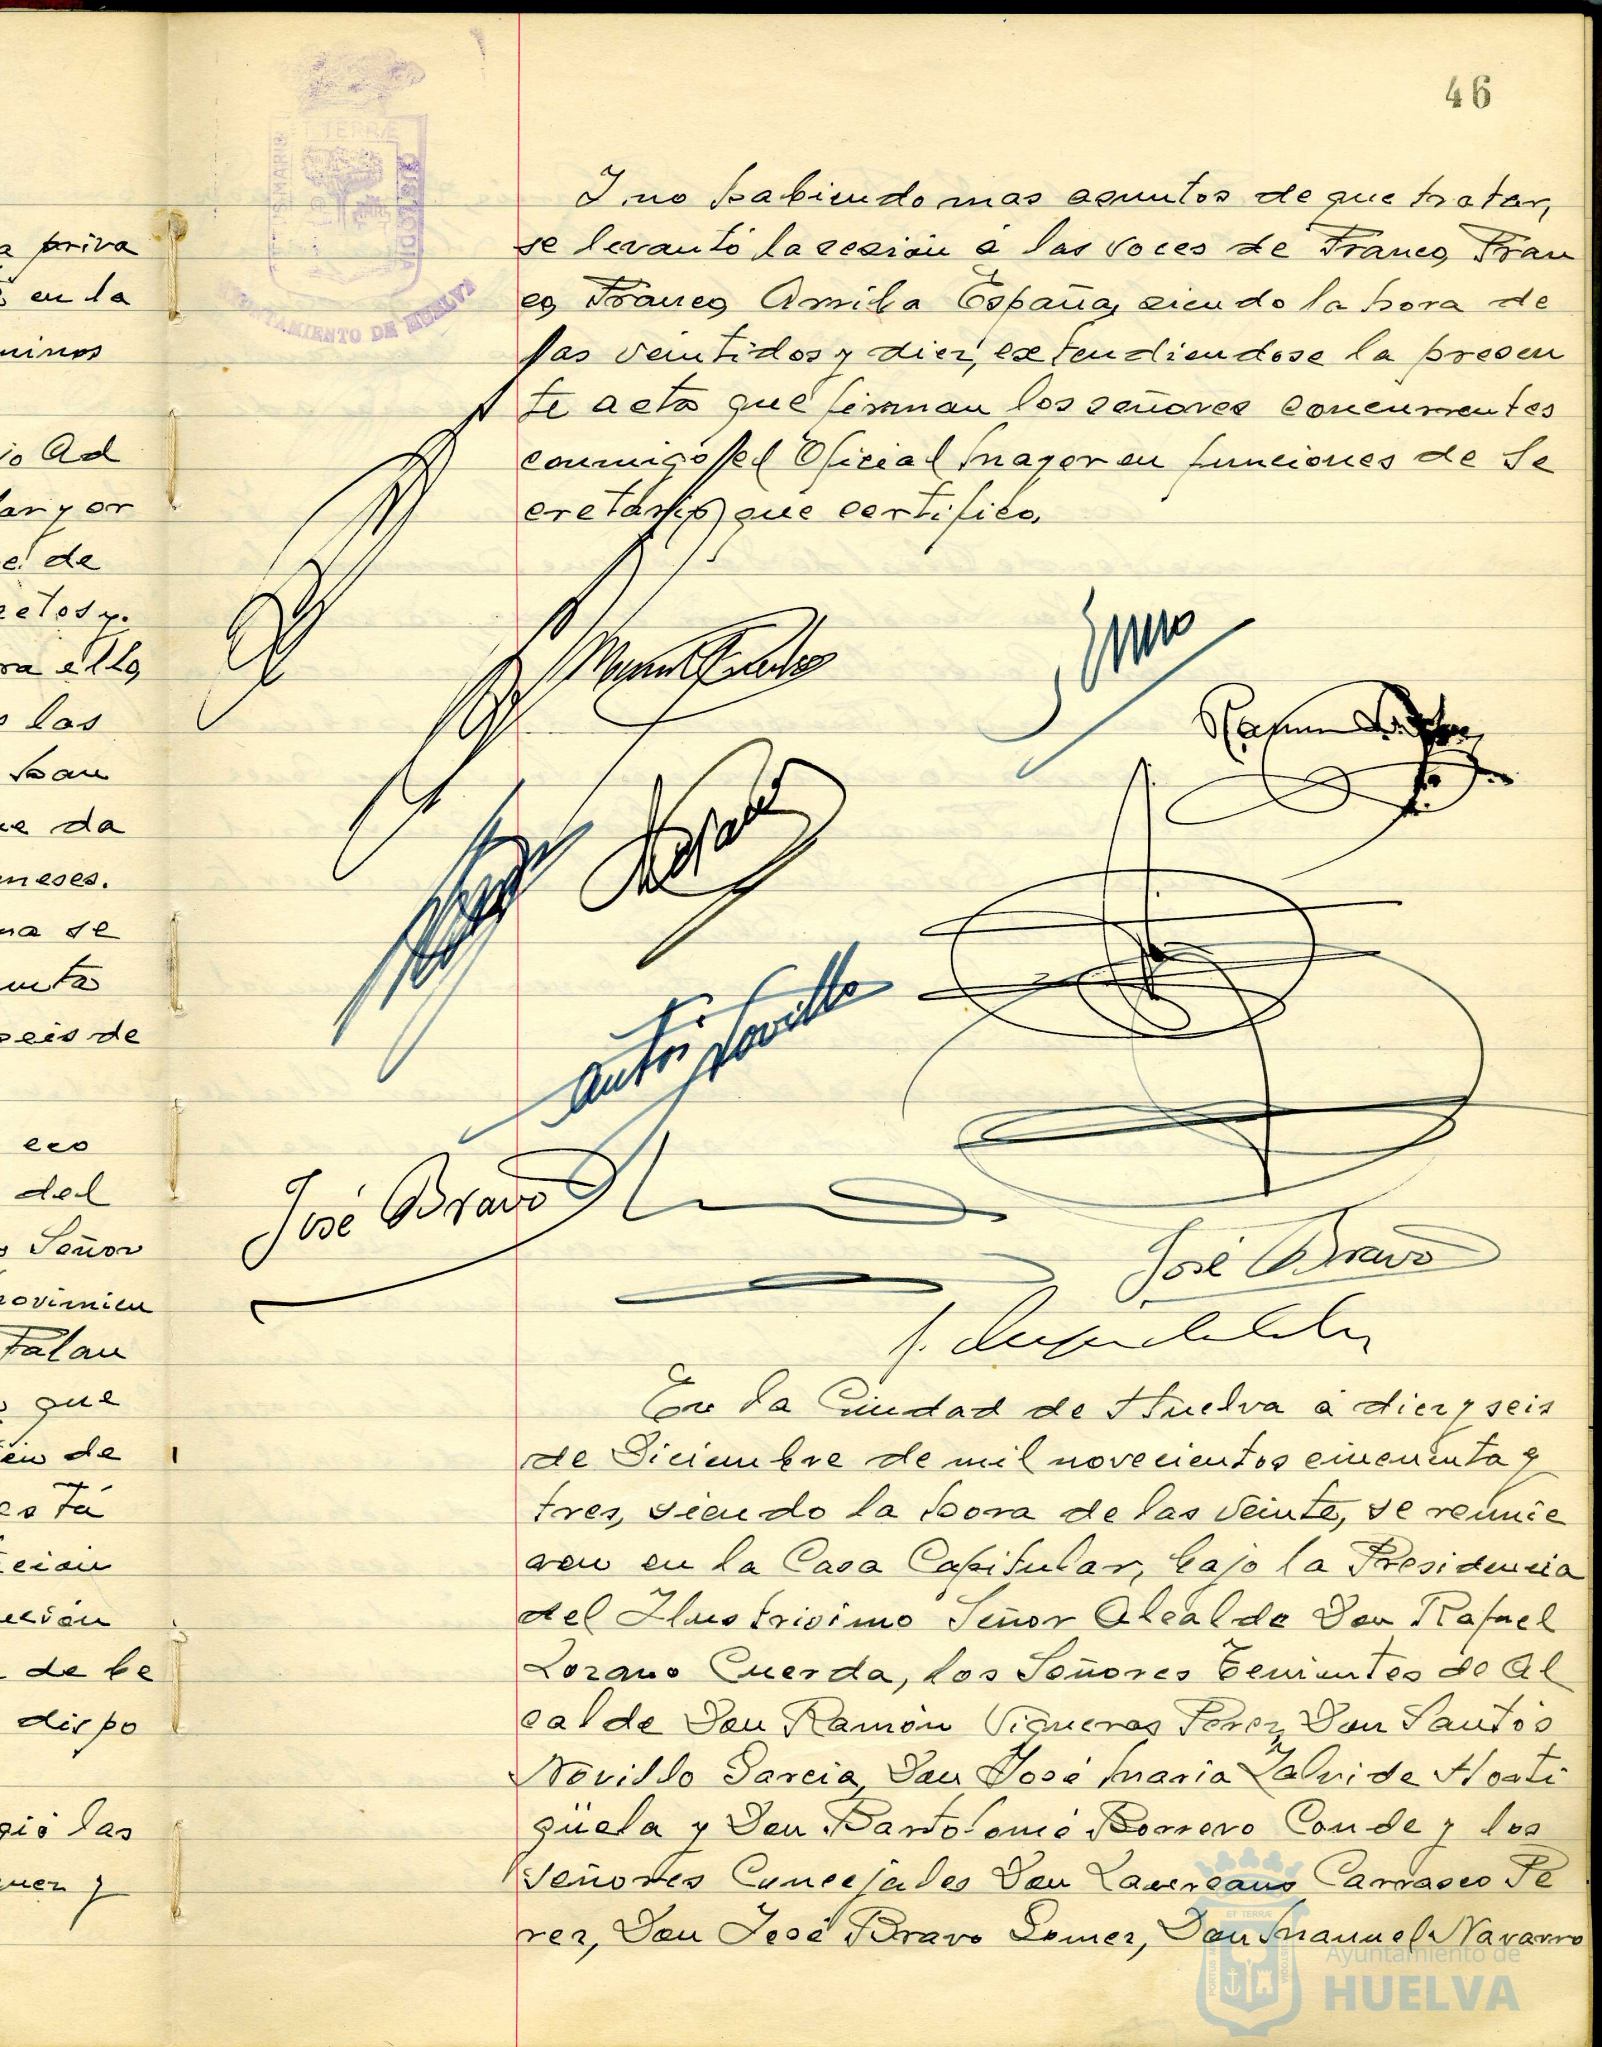 46
Y no habiendo mas asuntos de que tratar,
se levantó la sesión á las voces de Franco, Fran
co, Franco, Arriba España, siendo la hora de
las veintidos y diez, extendiendose la presen
te acta que firman los señores concurrentes
conmigo el Oficial Mayor en funciones de Se
cretario, que certifico.
José Bravo
José Bravo
En la Ciudad de Huelva á diez y seis
de Diciembre de mil novecientos cincuenta y
tres, siendo la hora de las veinte, se reunie
ron en la Casa Capitular, bajo la Presidencia
del Ilustrisimo Señor Alcalde Don Rafael
Lozano Cuerda, los Señores Tenientes de Al
calde Don Ramón Vigueras Perez, Don Santos
Novillo Garcia, Don José Maria Zalvide Horti
güela y Don Bartolomé Borrero Conde y los
señores Concejales Don Laureano Carrasco Pe
rez, Don José Bravo Gomez, Don Manuel Navarro
a priva
en la
minos
io Ad
lar y or
e de
retos y.
ra ello,
s las
han
ue da
meses.
ma se
unta
seis de
eco
del
Señor
Movimien
Falan
que
de
es tá
ción
ución
de be
dispo
gió las
y
ET TERRÆ
CUSTODIA
AYUNTAMIENTO DE HUELVA
Ayuntamiento de
HUELVA